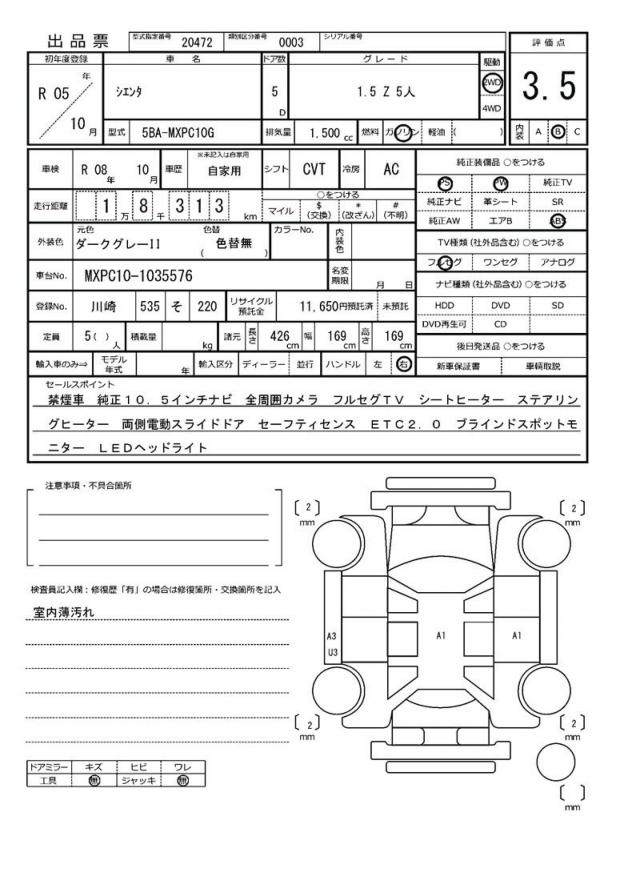 出品票 型式指定番号 20472 類別区分番号 0003 シリアル番号
初年度登録 車名 ドア数 グレード 駆動 評価点
R 05 年 10 月 シエンタ 5 D 1.5 Z 5人 2WD 4WD 3.5
型式 5BA-MXPC10G 排気量 1,500 cc 燃料 ガソリン 軽油 ( ) 内装 A B C
車検 R 08 年 10 月 車歴 ※未記入は自家用 自家用 シフト CVT 冷房 AC
純正装備品 ○をつける
PS PW 純正TV
純正ナビ 革シート SR
純正AW エアB ABS
走行距離 1 万 8 千 3 1 3 km
○をつける
マイル $ (交換) * (改ざん) # (不明)
TV種類(社外品含む) ○をつける
フルセグ ワンセグ アナログ
外装色 元色 ダークグレーII 色替 ( 色替無 ) カラーNo. 内装色
車台No. MXPC10-1035576 名変期限 月 日
ナビ種類(社外品含む) ○をつける
HDD DVD SD
DVD再生可 CD
登録No. 川崎 535 そ 220 リサイクル預託金 11,650円預託済 未預託
定員 5( ) 人 積載量 kg 諸元 長さ 426 cm 幅 169 cm 高さ 169 cm
後日発送品 ○をつける
新車保証書 車輌取説
輸入車のみ⇒ モデル年式 年 輸入区分 ディーラー 並行 ハンドル 左 右
セールスポイント
禁煙車 純正10.5インチナビ 全周囲カメラ フルセグTV シートヒーター ステアリン
グヒーター 両側電動スライドドア セーフティセンス ETC2.0 ブラインドスポットモ
ニター LEDヘッドライト
注意事項・不具合箇所
検査員記入欄:修復歴「有」の場合は修復箇所・交換箇所を記入
室内薄汚れ
ドアミラー キズ ヒビ ワレ
工具 無 ジャッキ 無
[2] mm [2] mm
A3 U3 A1 A1
[2] mm [2] mm
[ ] mm